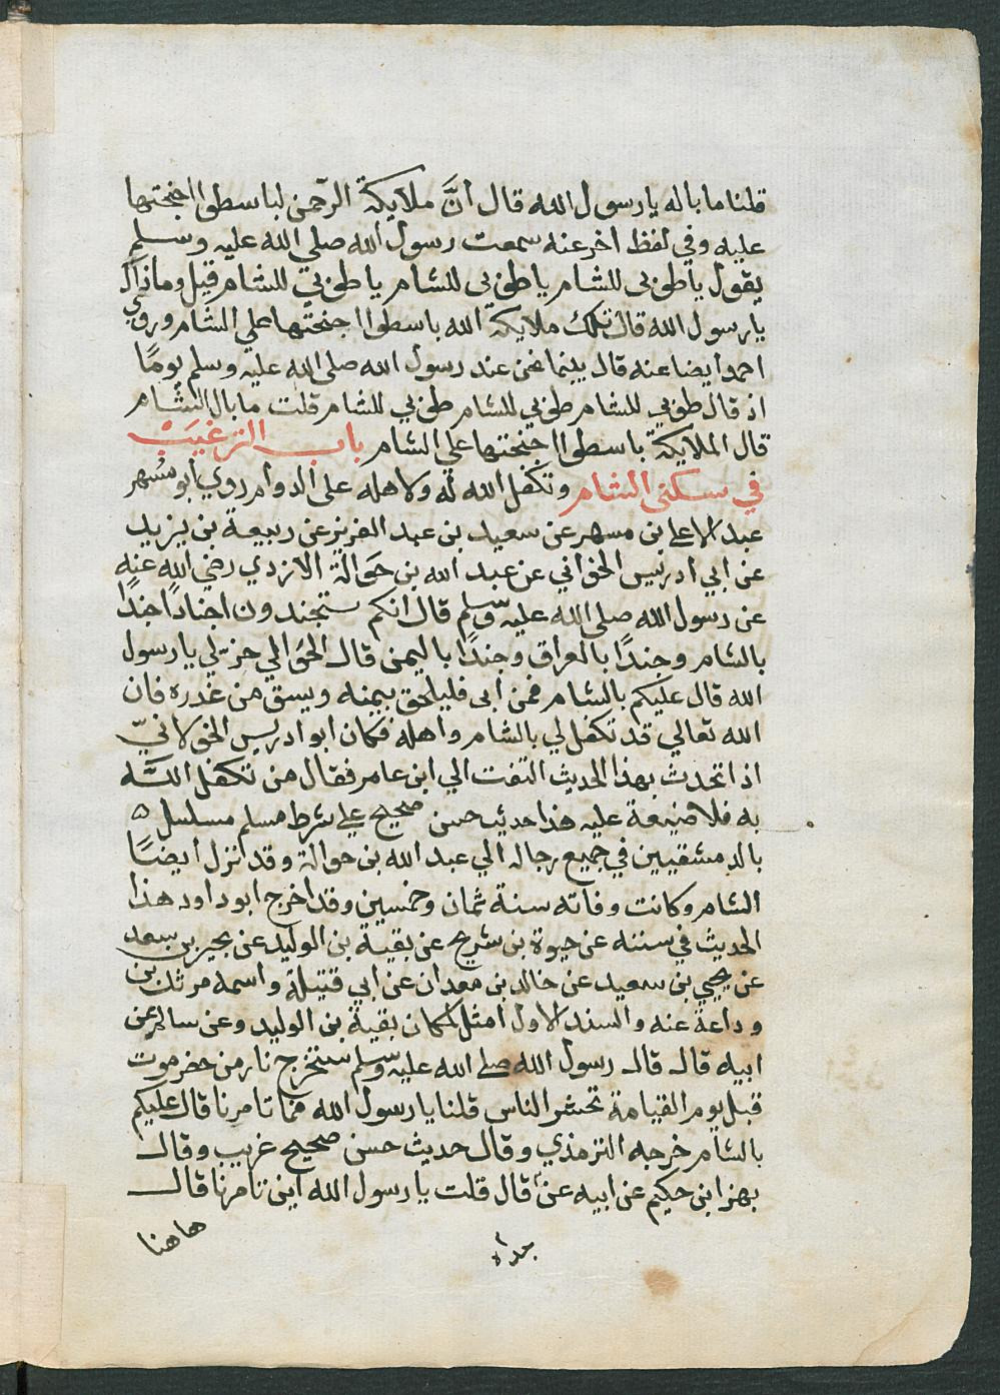 قلنا ما باله يا رسول الله قال انَّ ملايكة الرّحمن لباسطوا اجنحتها
عليه وفي لفظ اخر عنه سمعت رسول الله صلي الله عليه وسلم
يقول يا طوبى للشام يا طوبى للشام يا طوبي للشام قيل وما ذاك
يا رسول الله قال تلك ملايكة الله باسطوا اجنحتها علي الشام وروي
احمد ايضا عنه قال بينما نحن عند رسول الله صلي الله عليه وسلم يومًا
اذ قال طوبي للشام طوبي للشام طوبي للشام قلت ما بال الشام
قال الملايكة باسطوا اجنحتها علي الشام باب الترغيب
في سكنى الشام وتكفل الله له ولاهله على الدوام روي ابو مسهر
عبد الاعلى بن مسهر عن سعيد بن عبد العزيز عن ربيعة بن يزيد
عن ابي ادريس الخولاني عن عبد الله بن حوالة الازدي رضي الله عنه
عن رسول الله صلي الله عليه وسلم قال انكم ستجندون اجنادًا جندًا
بالشام وجندًا بالعراق وجندًا باليمن قال الحوالي خر لي يا رسول
الله قال عليكم بالشام فمن ابى فليلحق بيمنه ويسق من غدره فان
الله تعالي قد تكفل لي بالشام واهله فكان ابو ادريس الخولانيّ
اذا تحدث بهذا الحديث التفت الي ابن عامر فقال من تكفل الله
به فلا ضيعة عليه هذا حديث حسن صحيح علي شرط مسلم مسلسل ه
بالدمشقيين في جميع رجاله الي عبد الله بن حوالة وقد انزل ايضًا
الشام وكانت وفاته سنة ثمان وخمسين وقد اخرج ابو داود هذا
الحديث في سننه عن حيوة بن شريح عن بقية بن الوليد عن بحير بن سعد
عن يحيي بن سعيد عن خالد بن معدان عن ابي قتيلة واسمه مرثد بن
وداعة عنه والسند الاول امثل لمكان بقية بن الوليد وعن سالم عن
ابيه قال قال رسول الله صلي الله عليه وسلم ستخرج نار من حضرموت
قبل يوم القيامة تحشر الناس قلنا يا رسول الله فما تامرنا قال عليكم
بالشام خرجه الترمذي وقال حديث حسن صحيح غريب وقال
بهز ابن حكيم عن ابيه عن قال قلت يا رسول الله اين تامرنا قال
هاهنا
جده